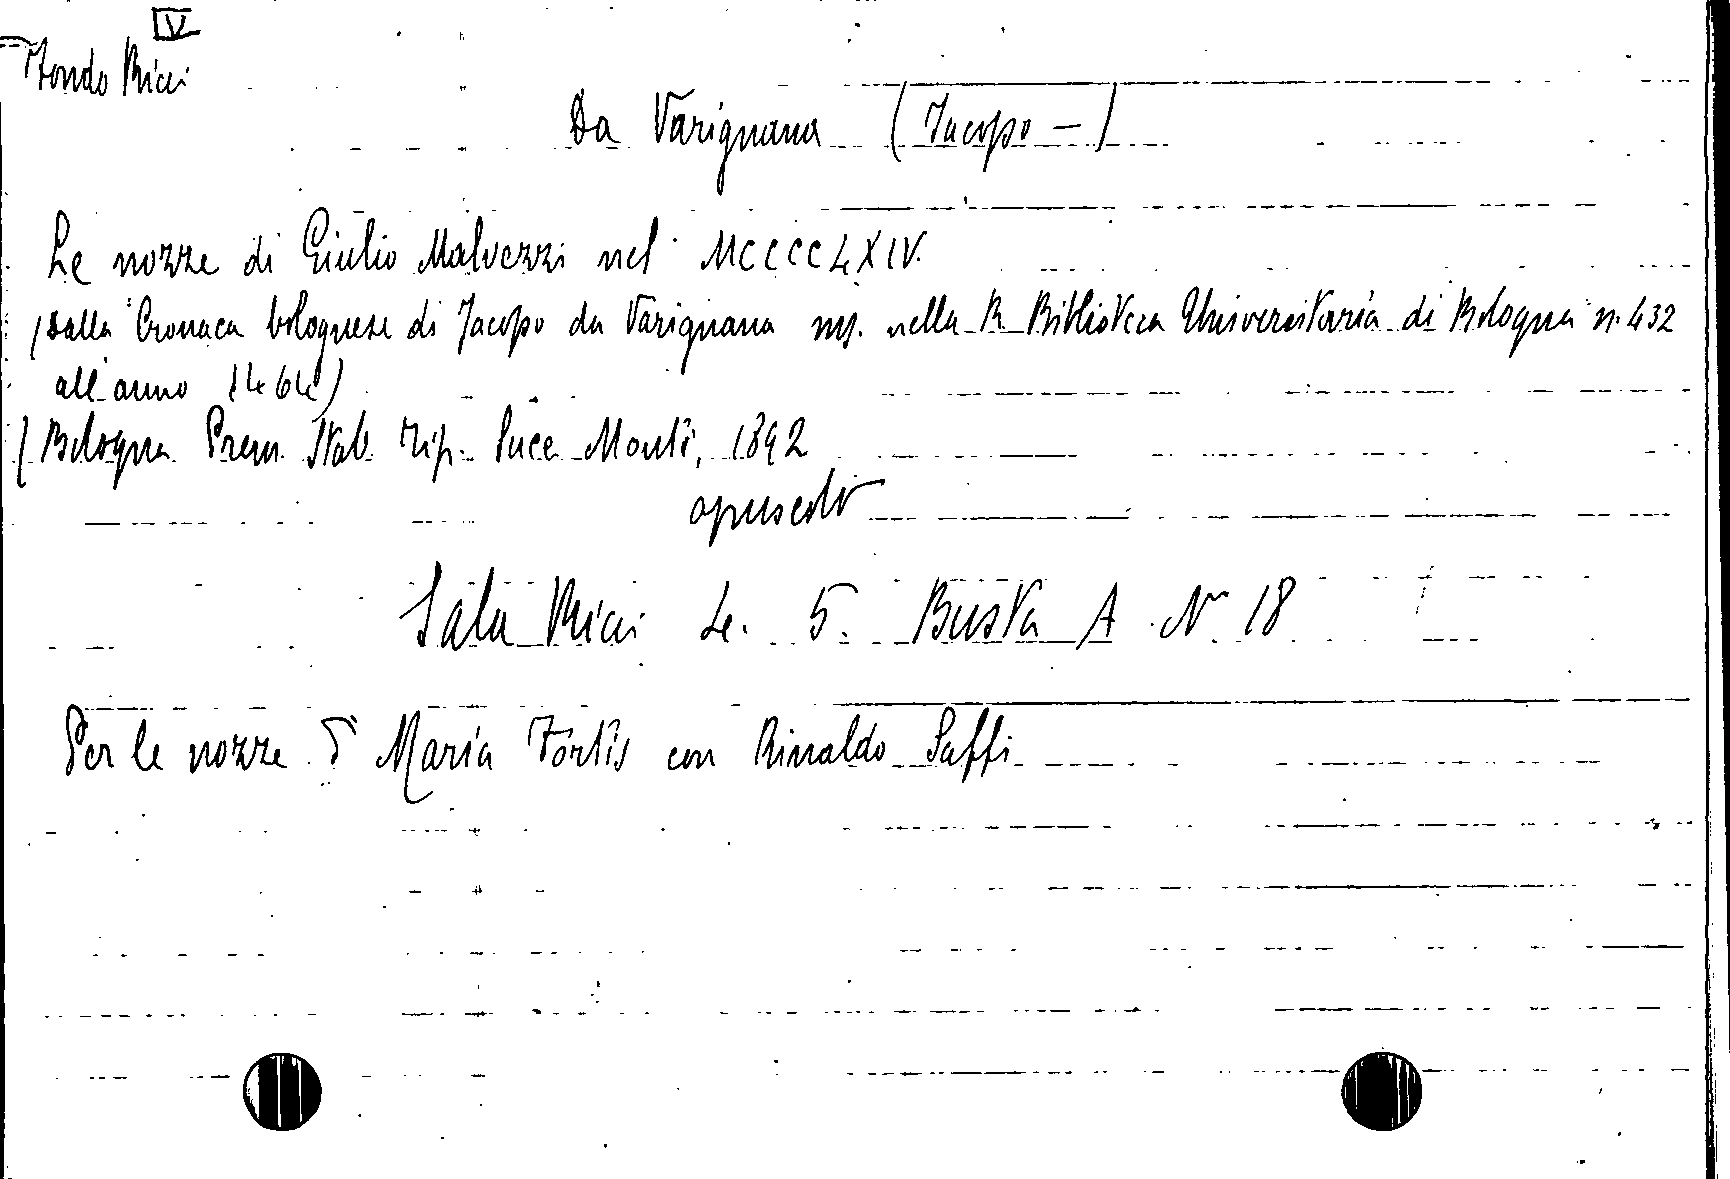 V
Fondo Ricci
Da Varignana (Jacopo —)
Le nozze di Giulio Malvezzi nel MCCCCLXIV.
(Dalla Cronaca bolognese di Jacopo da Varignana ms. nella R. Biblioteca Universitaria di Bologna n. 432
all'anno 1464)
(Bologna Prem. Stab. Tip. Succ. Monti, 1892
opuscolo
Sala Ricci Le. 5. Busta A N° 18
Per le nozze di Maria Fortis con Rinaldo Saffi